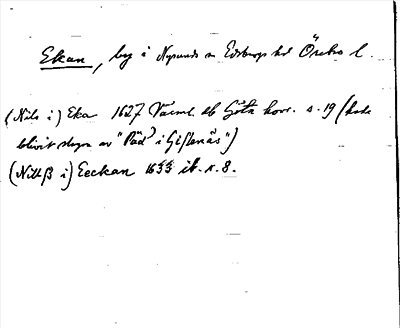 Ekan, by i Nysunds sn Edsbergs hd Örebro l.
(Nils i) Eka 1627 Värml. db Göta hovr. s. 19 (hade
blivit slagen av "Päd i Gistenäs")
(Nills i) Eeckan 1633 ib. s. 8.